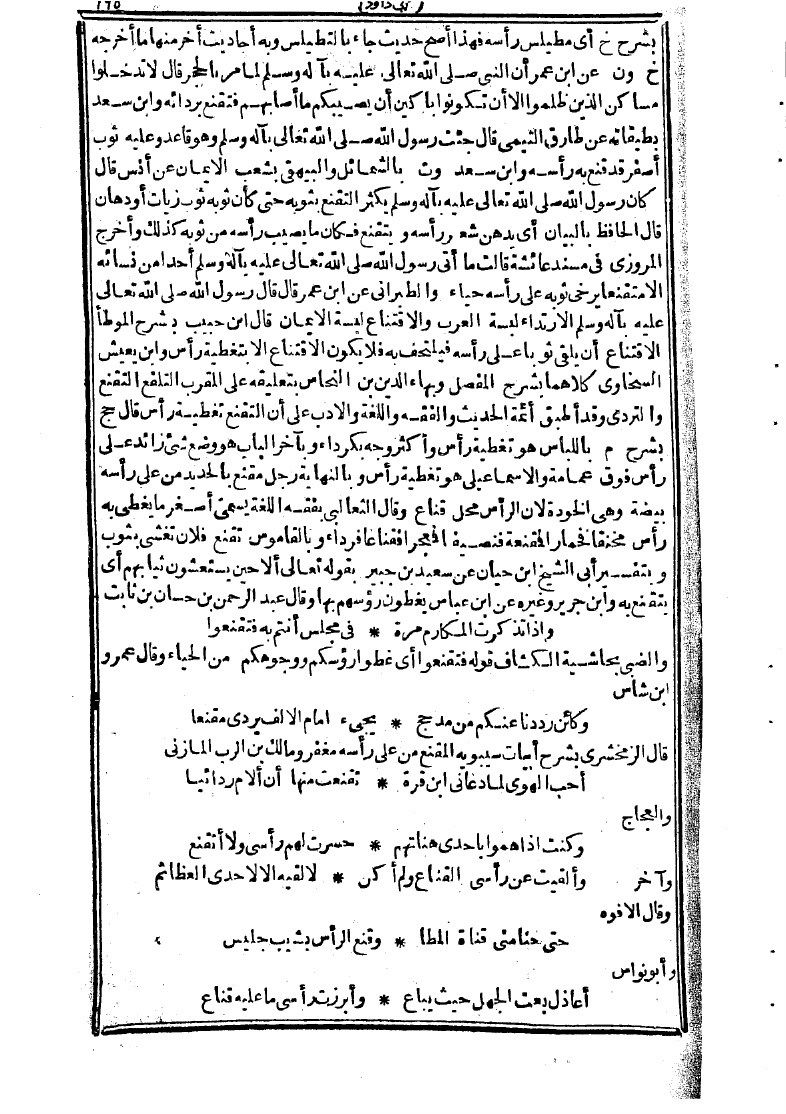 ١٦٥ (أبى داود)
بشرح خ أى مطيلس رأسه فهذا أصح حديث جاء بالتطيلس وبه أحاديث أخر منها ما أخرجه
خ ون عن ابن عمر أن النبى صلى الله تعالى عليه بآله وسلم لما مر بالحجر قال لا تدخلوا
مساكن الذين ظلموا الا أن تكونوا باكين أن يصيبكم ما أصابهم فتقنع بردائه وابن سعد
بطبقاته عن طارق التيمى قال جئت رسول الله صلى الله تعالى بآله وسلم وهو قاعد وعليه ثوب
أصفر قد قنع به رأسه وابن سعد وت بالشمائل والبيهقى بشعب الايمان عن أنس قال
كان رسول الله صلى الله تعالى عليه بآله وسلم يكثر التقنع بثوبه حتى كأن ثوبه ثوب زيات أودهان
قال الحافظ بالبيان أى يدهن شعر رأسه و يتقنع فكان ما يصيب رأسه من ثوبه كذلك وأخرج
المروزى فى مسند عائشة قالت ما أتى رسول الله صلى الله تعالى عليه بآله وسلم أحدا من نسائه
الا متقنعا يرخى ثوبه على رأسه حياء والطبرانى عن ابن عمر قال قال رسول الله صلى الله تعالى
عليه بآله وسلم الارتداء لبسة العرب والاقتناع لبسة الايمان قال ابن حبيب بشرح الموطأ
الاقتناع أن يلقى ثوبا على رأسه فيلتحف به فلا يكون الاقتناع الا بتغطية رأس وابن يعيش
السخاوى كلاهما بشرح المفصل وبهاء الدين بن النحاس بتعليقه على المقرب التلفع التقنع
والتردى وقد أطبق أئمة الحديث والفقه واللغة والادب على أن التقنع تغطية رأس قال حج
بشرح م باللباس هو تغطية رأس وأكثر وجه بكرداء و بآخر الباب هو وضع شئ زائد على
رأس فوق عمامة والاسماعيلى هو تغطية رأس و بالنهاية رجل مقنع بالحديد من على رأسه
بيضة وهى الخودة لان الرأس محل قناع وقال الثعالبى بفقه اللغة يسمى أصغر ما يغطى به
رأس مخنقا فخمار المقنعة فنصيفا فمعجر افقناعا فرداء و بالقاموس تقنع فلان تغشى بثوب
و بتفسير أبى الشيخ ابن حيان عن سعيد بن جبير بقوله تعالى ألا حين يستغشون ثيابهم أى
يتقنع به وابن جرير وغيره عن ابن عباس يغطون رؤسهم بها وقال عبد الرحمن بن حسان بن ثابت
واذا تذكرت المكارم مرة * فى مجلس أنتم به فتقنعوا
والضبى بحاشية الكشاف قوله فتقنعوا أى غطوا رؤسكم ووجوهكم من الحياء وقال عمرو
ابن شاس
وكائن رددنا عنكم من مدجج * يجىء امام الالف يردى مقنعا
قال الزمخشرى بشرح أبيات سيبويه المقنع من على رأسه مغفر ومالك بن الرب المازنى
أحب الهوى لما دعانى ابن قرة * تقنعت منها أن ألام ردائيا
والعجاج
وكنت اذا هموا باحدى هناتهم * حسرت لهم رأسى ولا أتقنع
وآخر وألقيت عن رأسى القناع ولم أكن * لالقيه الا لاحدى العظائم
وقال الافوه
حتى حنا منى قناة المطا * وقنع الرأس بشيب حليس
وأبونواس
أعاذل بعت الجهل حيث يباع * وأبرزت رأسى ما عليه قناع